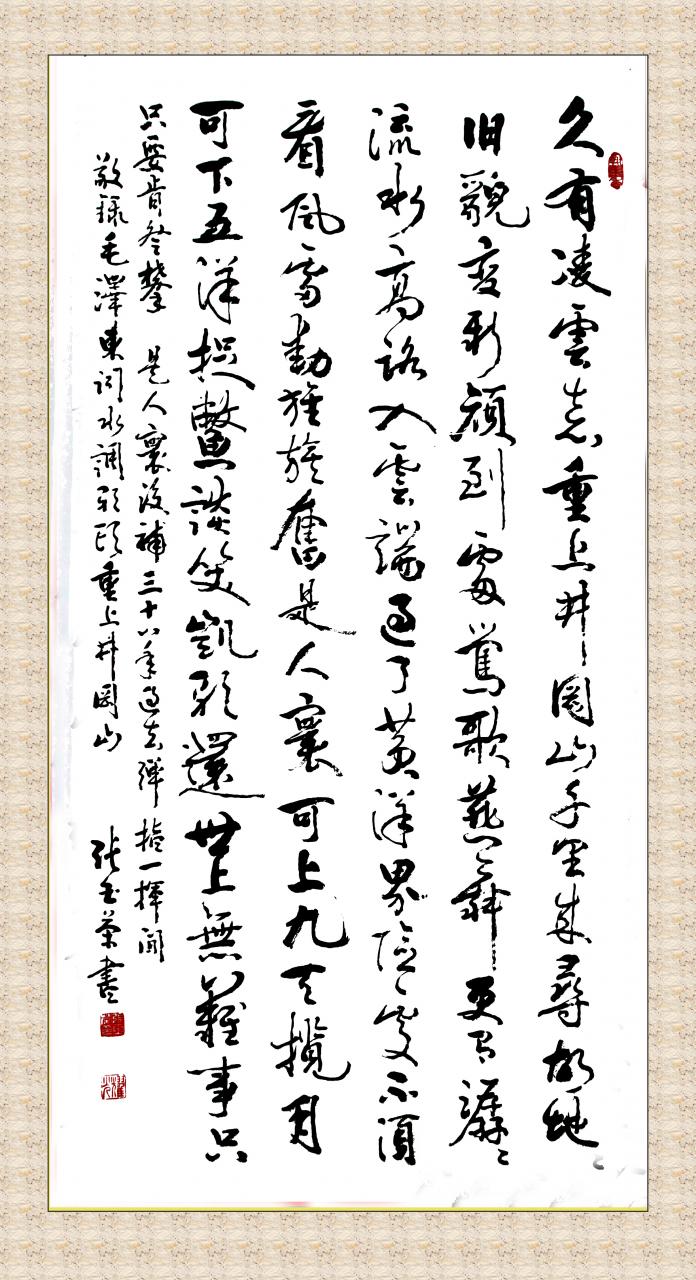 久有凌雲志重上井岡山千里來尋故地
旧貌变新顏到處鶯歌燕舞更有潺〻
流水高路入雲端過了黄洋界險處不須
看風雷動旌旗奮是人寰可上九天攬月
可下五洋捉鱉談笑凱歌還世上無難事只
只要肯登攀 是人寰後補三十八年過去彈指一揮間
敬錄毛澤東詞水調歌頭重上井岡山 张玉荣書